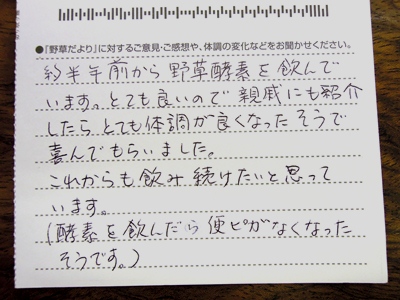 ●『野草だより』に対するご意見・ご感想や、体調の変化などをお聞かせください。
約半年前から野草酵素を飲んで
います。とても良いので親戚にも紹介
したらとても体調が良くなったそうで
喜んでもらいました。
これからも飲み続けたいと思って
います。
(酵素を飲んだら便ピがなくなった
そうです。)